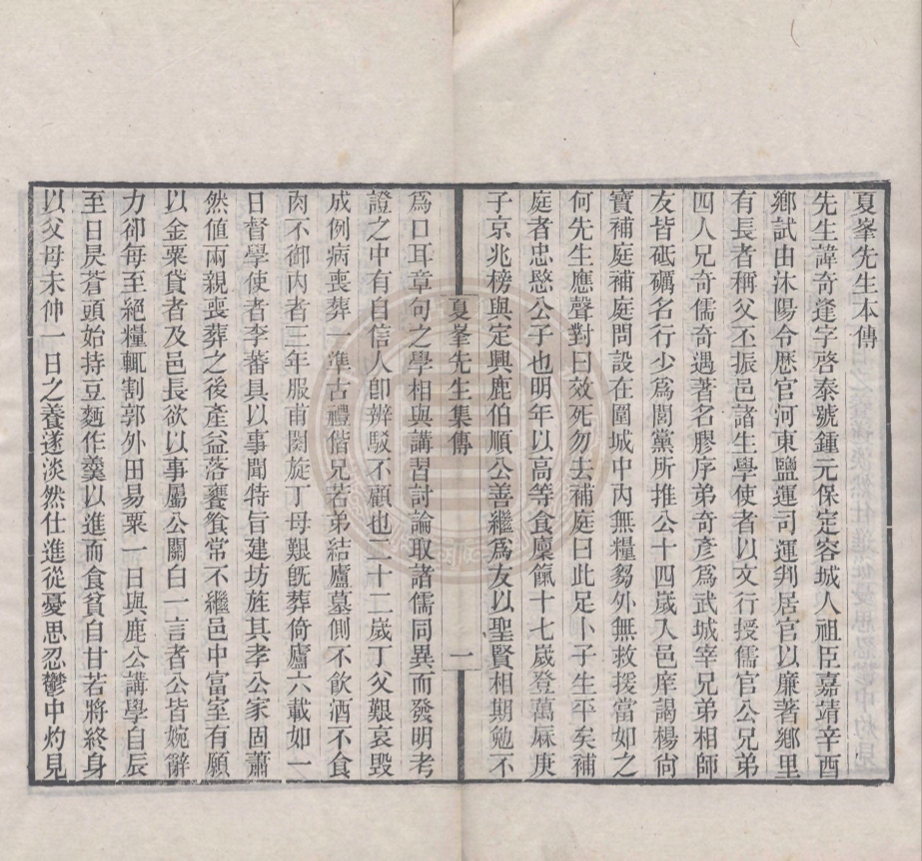 夏峯先生本傳
先生諱奇逢字啓泰號鍾元保定容城人祖臣嘉靖辛酉
鄉試由沐陽令歷官河東鹽運司運判居官以廉著鄉里
有長者稱父丕振邑諸生學使者以文行授儒官公兄弟
四人兄奇儒奇遇著名膠序弟奇彥爲武城宰兄弟相師
友皆砥礪名行少爲閭黨所推公十四歲入邑庠謁楊尙
寶補庭補庭問設在圍城中內無糧芻外無救援當如之
何先生應聲對曰效死勿去補庭曰此足卜子生平矣補
庭者忠愍公子也明年以高等食廩餼十七歲登萬厤庚
子京兆榜與定興鹿伯順公善繼爲友以聖賢相期勉不
夏峯先生集傳 一
爲口耳章句之學相與講習討論取諸儒同異而發明考
證之中有自信人卽辨駁不顧也二十二歲丁父艱哀毀
成例病喪葬一準古禮偕兄若弟結廬墓側不飮酒不食
肉不御內者三年服甫闋旋丁母艱旣葬倚廬六載如一
日督學使者李蕃具以事聞特旨建坊旌其孝公家固蕭
然値兩親喪葬之後產益落饔飧常不繼邑中富室有願
以金粟貸者及邑長欲以事屬公關白一言者公皆婉辭
力卻每至絕糧輒割郭外田易粟一日與鹿公講學自辰
至日昃蒼頭始持豆麵作羹以進而食貧自甘若將終身
以父母未伸一日之養遂淡然仕進從憂思忍鬱中灼見